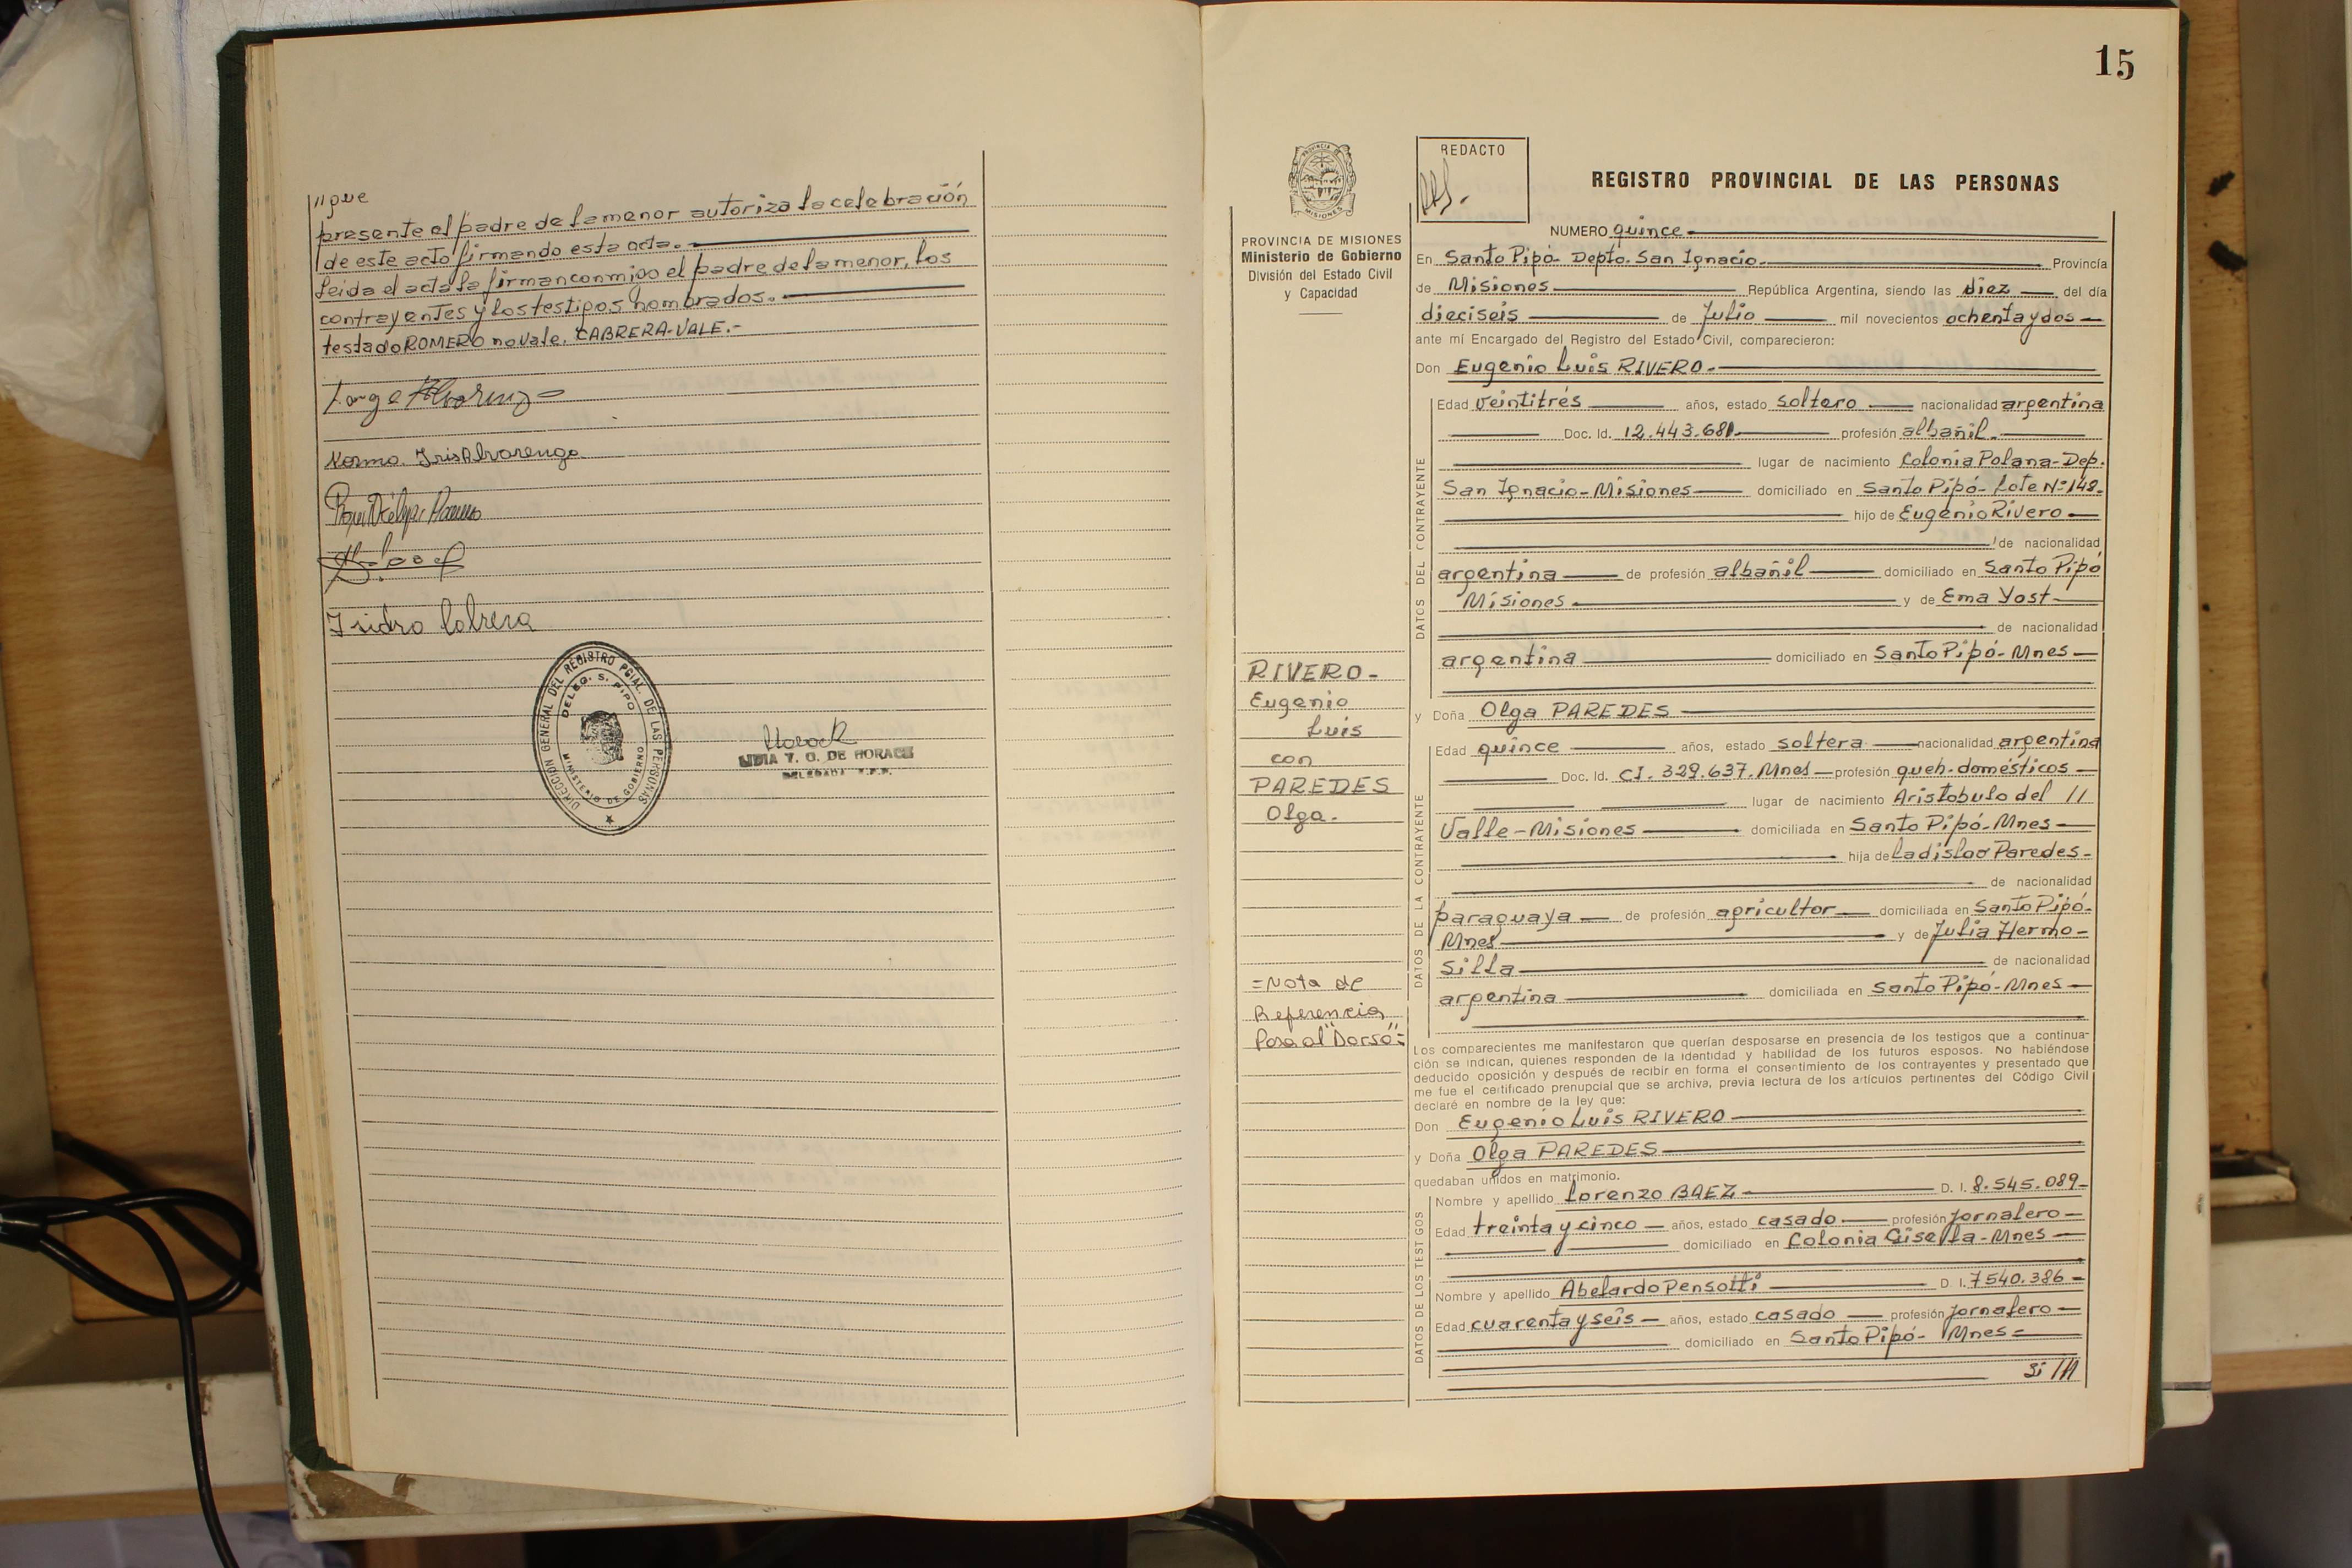 "que
presente el padre de la menor autoriza la celebración
de este acto firmando esta acta.
Leida el acta la firman conmigo el padre de la menor, los
contrayentes y los testigos nombrados.
testado ROMERO no vale. CABRERA-VALE.-
Norma Iris Alvarenga
Isidro Cabrera
DIRECCIÓN GENERAL DEL REGISTRO PCIAL. DE LAS PERSONAS
DELEG. S. PIPO
MINISTERIO DE GOBIERNO
LIDIA T. O. DE HORACK
DELEGADA
15
PROVINCIA DE MISIONES
Ministerio de Gobierno
División del Estado Civil
y Capacidad
RIVERO-
Eugenio
Luis
con
PAREDES
Olga.
=Nota de
Referencia
Pasa al "Dorso"=
REDACTO
REGISTRO PROVINCIAL DE LAS PERSONAS
NUMERO quince
En Santo Pipó- Depto. San Ignacio. Provincia
de Misiones República Argentina, siendo las diez del día
dieciseis de Julio mil novecientos ochenta y dos
ante mí Encargado del Registro del Estado Civil, comparecieron:
Don Eugenio Luis RIVERO.
DATOS DEL CONTRAYENTE
Edad veintitrés años, estado soltero nacionalidad argentina
Doc. Id. 12.443.681. profesión albañil.
lugar de nacimiento Colonia Polana-Dep.
San Ignacio-Misiones domiciliado en Santo Pipó- Lote Nº148.
hijo de Eugenio Rivero
de nacionalidad
argentina de profesión albañil domiciliado en Santo Pipó
Misiones y de Ema Yost
de nacionalidad
argentina domiciliado en Santo Pipó- Mnes
y Doña Olga PAREDES
DATOS DE LA CONTRAYENTE
Edad quince años, estado soltera nacionalidad argentina
Doc. Id. CI. 329.637. Mnes profesión queh. domésticos
lugar de nacimiento Aristobulo del //
Valle-Misiones domiciliada en Santo Pipó-Mnes
hija de Ladislao Paredes-
de nacionalidad
paraguaya de profesión agricultor domiciliada en Santo Pipó-
Mnes y de Julia Hermo-
silla de nacionalidad
argentina domiciliada en Santo Pipó-Mnes
Los comparecientes me manifestaron que querían desposarse en presencia de los testigos que a continua-
ción se indican, quienes responden de la identidad y habilidad de los futuros esposos. No habiéndose
deducido oposición y después de recibir en forma el consentimiento de los contrayentes y presentado que
me fue el certificado prenupcial que se archiva, previa lectura de los artículos pertinentes del Código Civil
declaré en nombre de la ley que:
Don Eugenio Luis RIVERO
y Doña Olga PAREDES
quedaban unidos en matrimonio.
DATOS DE LOS TESTIGOS
Nombre y apellido Lorenzo BAEZ D. I. 8.545.089
Edad treinta y cinco años, estado casado profesión Jornalero
domiciliado en Colonia Gisella-Mnes
Nombre y apellido Abelardo Pensotti D. I. 7540.386
Edad cuarenta y seis años, estado casado profesión Jornalero
domiciliado en Santo Pipó- Mnes